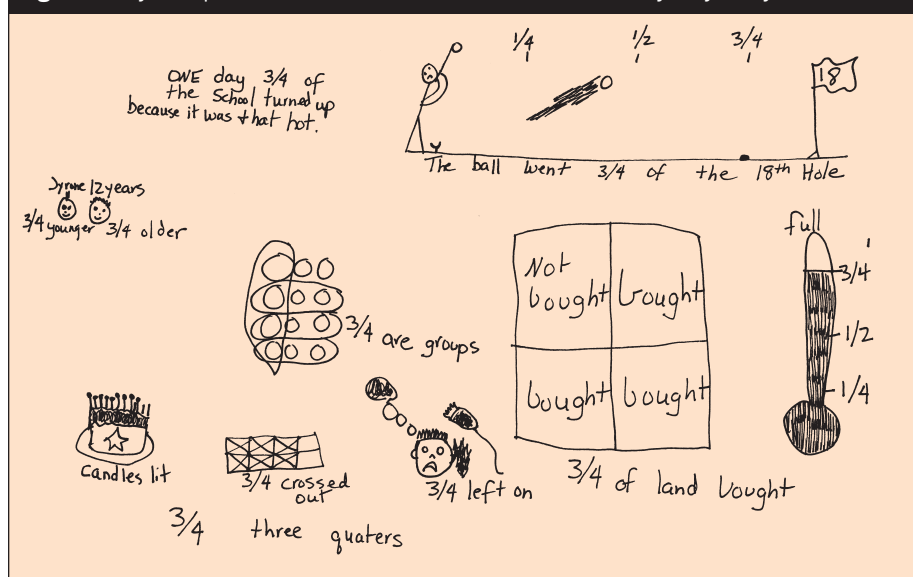 1/4 1/2 3/4
18
ONE day 3/4 of
the School turned up
because it was that hot.
The ball went 3/4 of the 18th Hole
Jyrone 12 years
3/4 younger 3/4 older
full
3/4
1/2
1/4
Not
bought
bought
bought
bought
3/4 of land bought
3/4 are groups
Candles lit
3/4 crossed
out
3/4 left on
3/4 three quaters